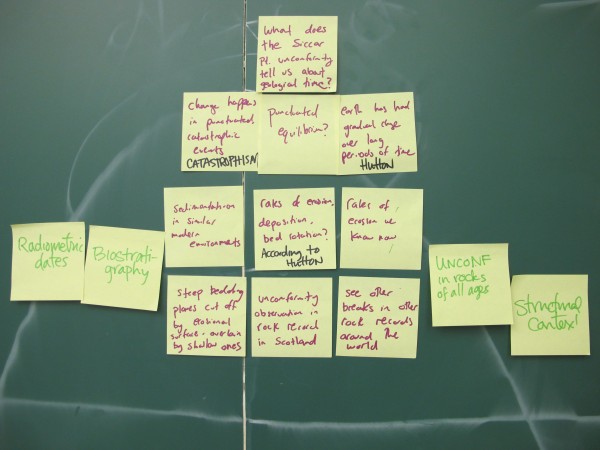 What does
the Siccar
Pt. unconformity
tell us about
geological time?
Change happens
in punctuated
catastrophic
events
CATASTROPHISM
punctuated
equilibrium?
earth has had
gradual chge
over long
periods of time
HUTTON
sedimentation
in similar
modern
environments
rates of erosion,
deposition,
bed rotation?
According to
HUTTON
rates of
erosion we
know now
Radiometric
dates
Biostrati-
graphy
UNCONF
in rocks
of all ages
Structural
Context
steep bedding
planes cut off
by erosional
surface - overlain
by shallow ones
unconformity
observation in
rock record
in Scotland
see other
breaks in other
rock records
around the
world